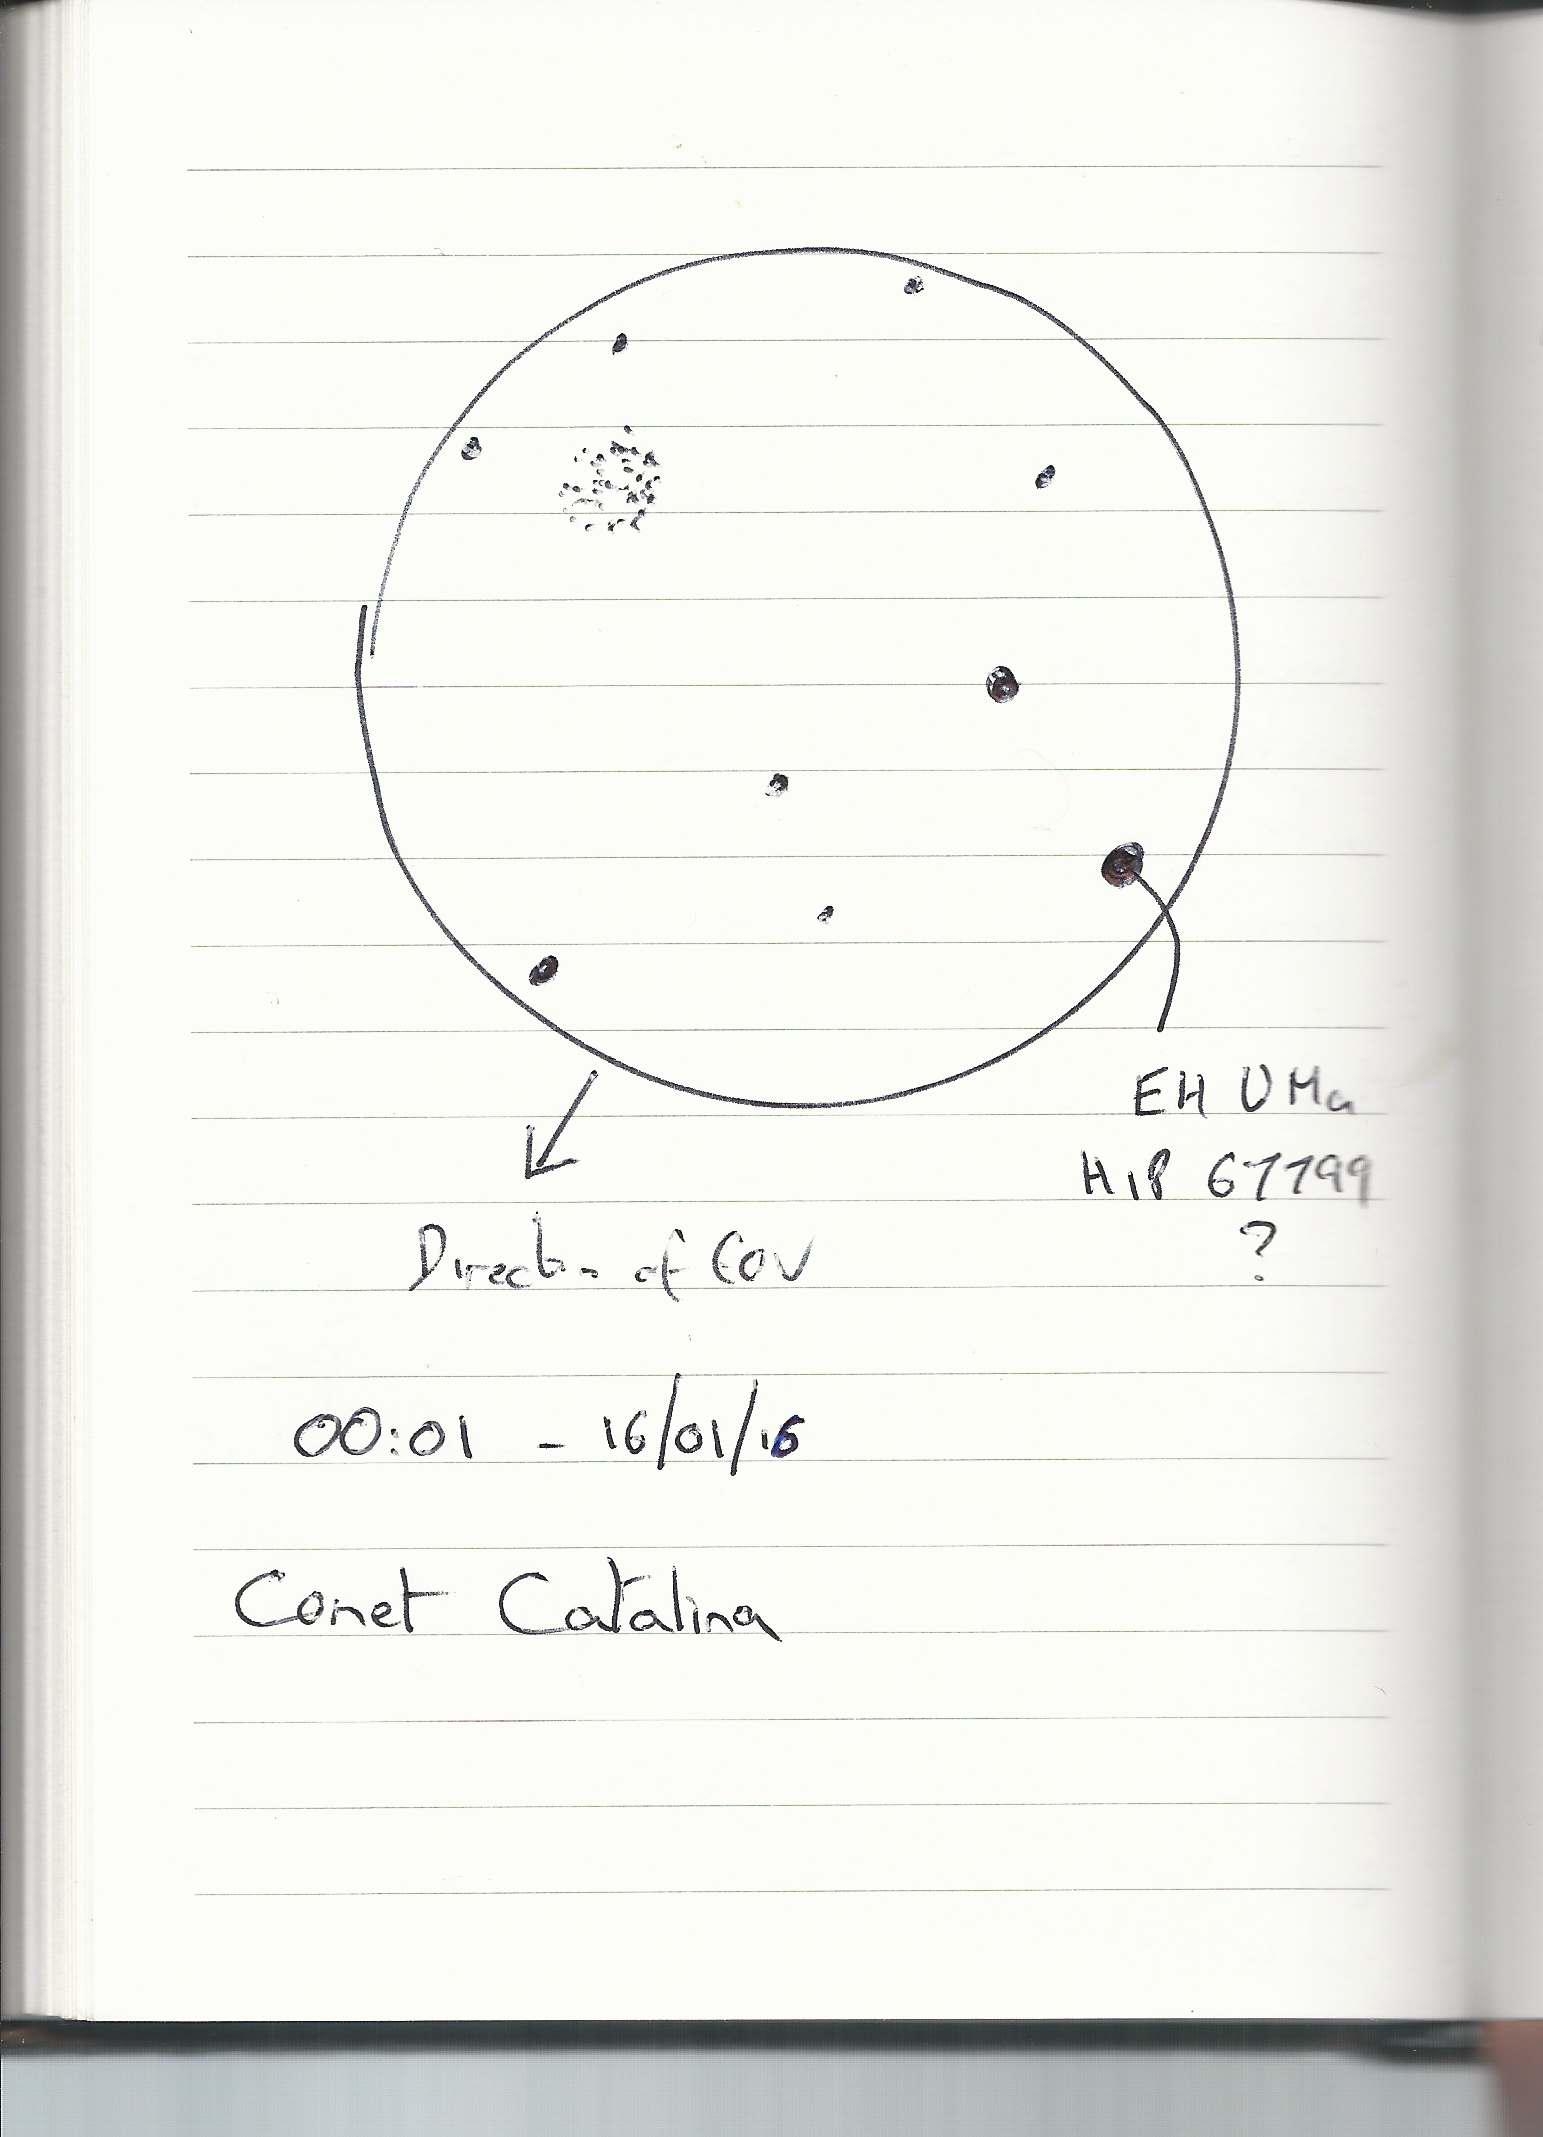 EH UMa
HIP 67799
?
Direction of FOV
00:01 - 16/01/16
Comet Catalina